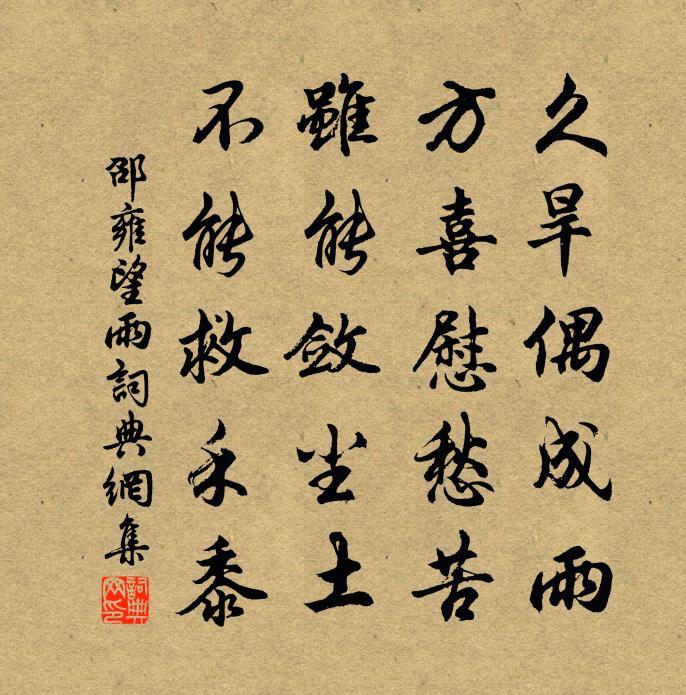 久旱偶成雨
方喜慰愁苦
雖能斂尘土
不能救禾黍
邵雍望雨詞典網集
詞典网印